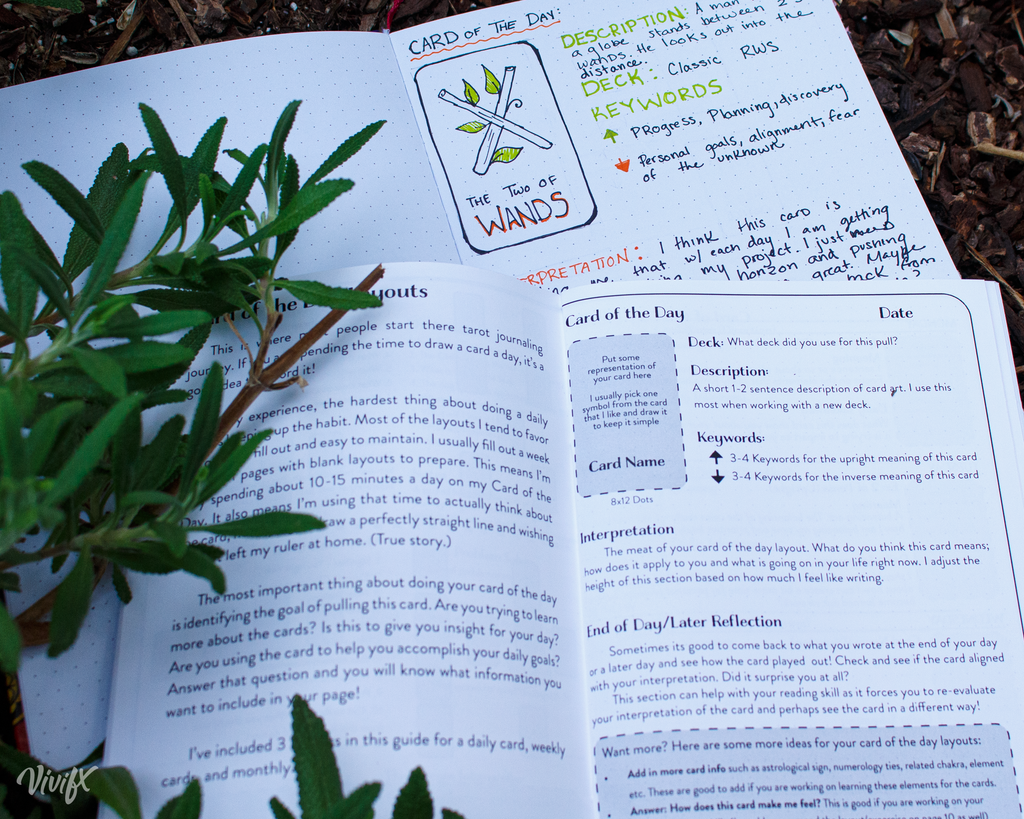 CARD OF THE DAY:
THE TWO OF
WANDS
DESCRIPTION: A man
a globe stands between 2
wands. He looks out into the
distance.
DECK: Classic RWS
KEYWORDS
PROgress, Planning, discovery
Personal goals, alignment, fear
of the unknown
I think this card is
that w/ each day I am getting
my project. I just need
horizon and pushing
great. Maybe
from
of the
This is where people start there tarot journaling
journey. If you spending the time to draw a card a day, it's a
experience, the hardest thing about doing a daily
up the habit. Most of the layouts I tend to favor
fill out and easy to maintain. I usually fill out a week
pages with blank layouts to prepare. This means I'm
spending about 10-15 minutes a day on my Card of the
Day. It also means I'm using that time to actually think about
draw a perfectly straight line and wishing
left my ruler at home. (True story.)
The most important thing about doing your card of the day
is identifying the goal of pulling this card. Are you trying to learn
more about the cards? Is this to give you insight for your day?
Are you using the card to help you accomplish your daily goals?
Answer that question and you will know what information you
want to include in your page!
I've included 3 in this guide for a daily card, weekly
card, and monthly
Card of the Day Date
Put some
representation of
your card here
I usually pick one
symbol from the card
that I like and draw it
to keep it simple
Card Name
8x12 Dots
Deck: What deck did you use for this pull?
Description:
A short 1-2 sentence description of card art. I use this
most when working with a new deck.
Keywords:
3-4 Keywords for the upright meaning of this card
3-4 Keywords for the inverse meaning of this card
Interpretation
The meat of your card of the day layout. What do you think this card means;
how does it apply to you and what is going on in your life right now. I adjust the
height of this section based on how much I feel like writing.
End of Day/Later Reflection
Sometimes its good to come back to what you wrote at the end of your day
or a later day and see how the card played out! Check and see if the card aligned
with your interpretation. Did it surprise you at all?
This section can help with your reading skill as it forces you to re-evaluate
your interpretation of the card and perhaps see the card in a different way!
Want more? Here are some more ideas for your card of the day layouts:
• Add in more card info such as astrological sign, numerology ties, related chakra, element
etc. These are good to add if you are working on learning these elements for the cards.
• Answer: How does this card make me feel? This is good if you are working on your
Vivifx